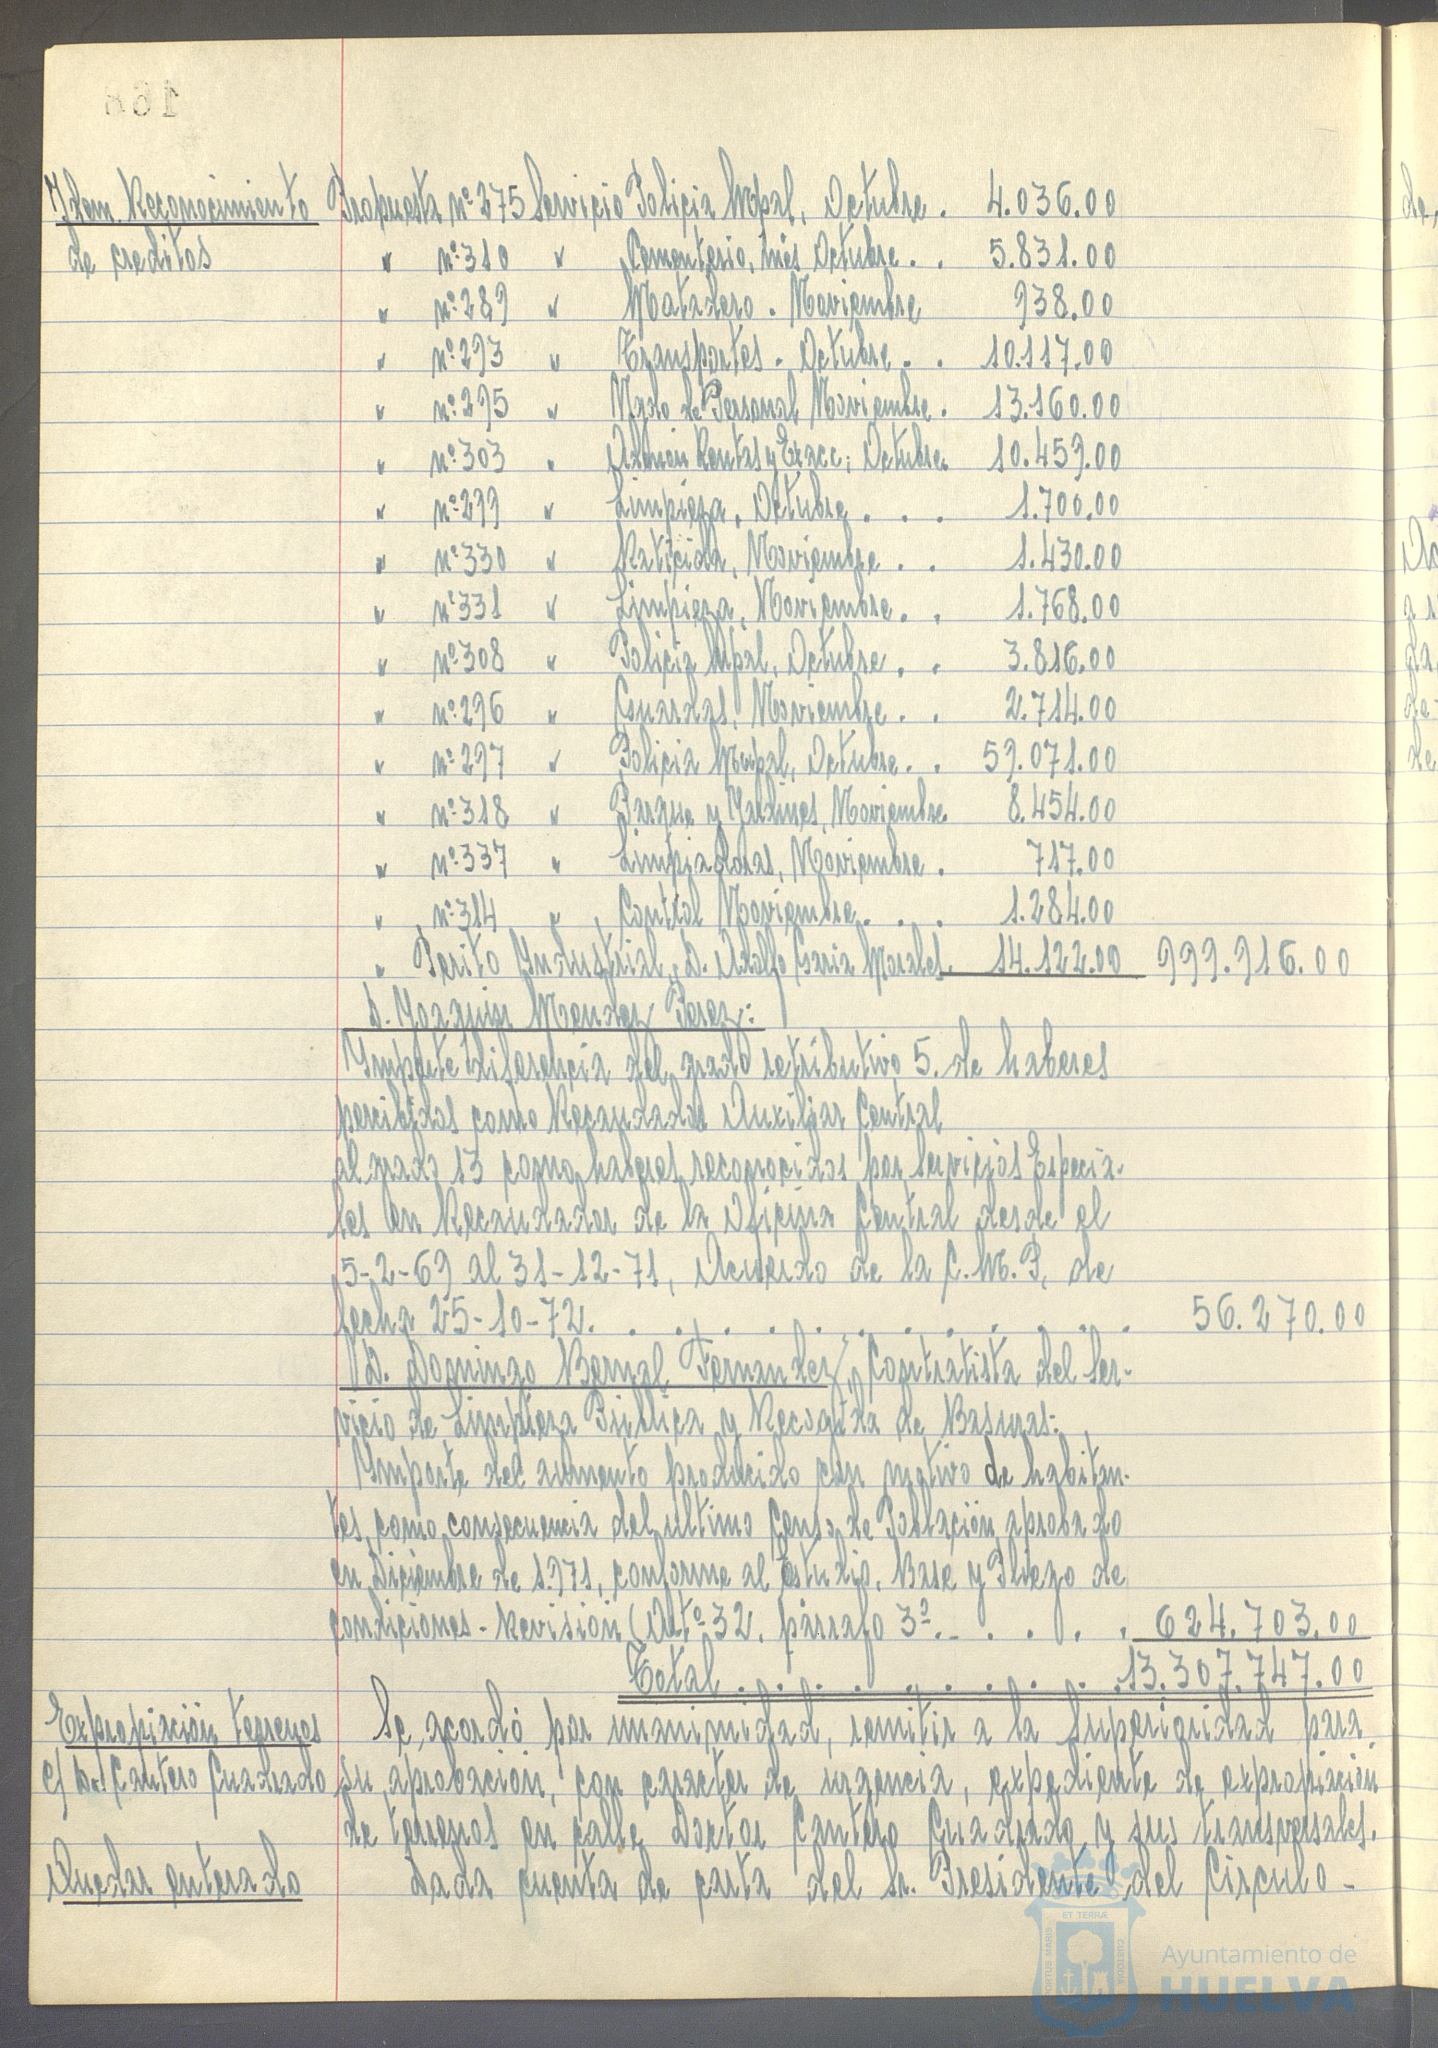 168
Idem. Reconocimiento Propuesta nº 275 Servicio Policia Mpal, Octubre . 4.036.00
de creditos " nº 310 " Cementerio, mes Octubre . . 5.831.00
" nº 289 " Matadero . Noviembre 938.00
" nº 293 " Transportes . Octubre . . 10.117.00
" nº 295 " Ngdo de Personal Noviembre . 13.160.00
" nº 303 " Admon Rentas y Exacc; Octubre. 10.459.00
" nº 299 " Limpieza, Octubre . . . 1.700.00
" nº 330 " Raticida, Noviembre . . 1.430.00
" nº 331 " Limpieza, Noviembre . . 1.768.00
" nº 308 " Policia Mpal, Octubre . . 3.816.00
" nº 296 " Guardas, Noviembre . . 2.714.00
" nº 297 " Policia Mupal, Octubre . . 59.071.00
" nº 318 " Parque y Jardines, Noviembre. 8.454.00
" nº 337 " Limpiadoras, Noviembre . 717.00
" nº 314 " Control Noviembre . . . 1.284.00
" Perito Industrial, D. Adolfo Garia Morales. 14.122.00 999.916.00
D. Joaquin Mendez Perez:
Importe diferencia del grado retributivo 5. de haberes
percibidos como Recaudador Auxiliar Central
al grado 13 como haberes reconocidos por Servicios Especia-
les en Recaudador de la Oficina Central desde el
5-2-69 al 31-12-71, Acuerdo de la C.M.P, de
fecha 25-10-72. . . . . . . . . . . . . 56.270.00
D. Domingo Bernal Fernandez, Contratista del Ser-
vicio de Limpieza Pública y Recogida de Basuras:
Importe del aumento producido con motivo de habitan-
tes, como consecuencia del ultimo Censo de Población aprobado
en Diciembre de 1.971, conforme al Estudio, Base y Pliego de
condiciones - Revisión (Artº 32, párrafo 3º. . . . . . 624.703.00
Total . . . . . . . . . . 13.307.747.00
Expropiación terrenos Se acordó por unanimidad, remitir a la Superioridad para
c/ Dr. Cantero Cuadrado su aprobación, con caracter de urgencia, expediente de expropiación
de terrenos en calle Doctor Cantero Cuadrado y sus transversales.
Quedar enterado Dada cuenta de carta del Sr. Presidente del Circulo-
ET TERRÆ
PORTUS MARIS
CUSTODIA
Ayuntamiento de
HUELVA